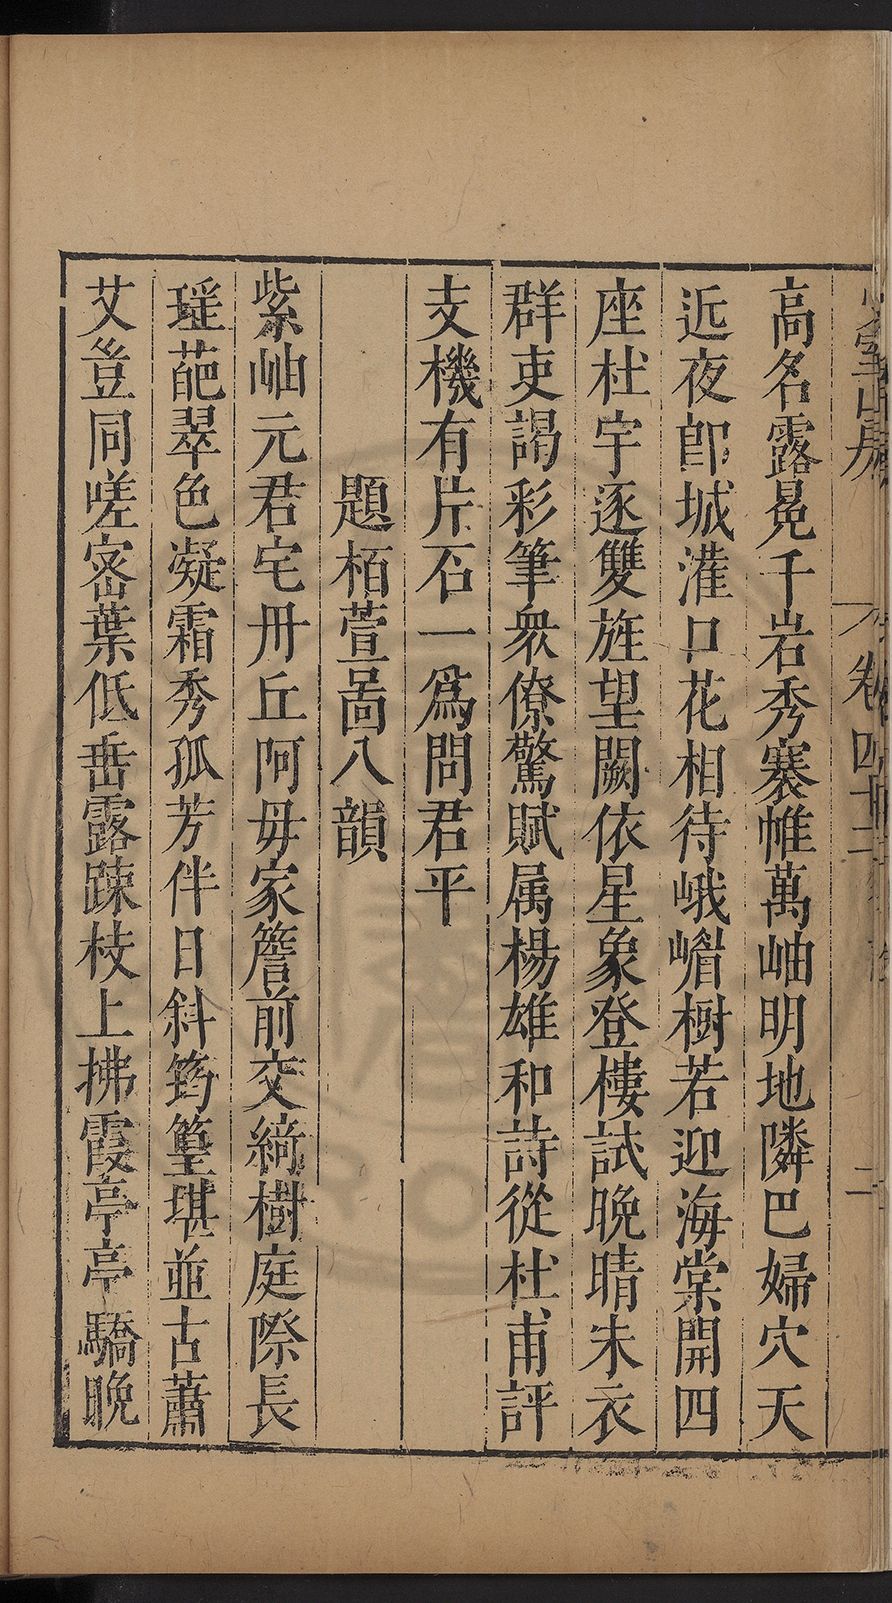 高名露冕千岩秀褰帷萬岫明地隣巴婦穴天
近夜郎城灌口花相待峨嵋樹若迎海棠開四
座杜宇逐雙旌望闕依星象登樓試晚晴朱衣
群吏謁彩筆衆僚驚賦属楊雄和詩從杜甫評
支機有片石一爲問君平
題栢萱啚八韻
紫岫元君宅丹丘阿母家簷前交綺樹庭際長
瑶葩翠色凝霜秀孤芳伴日斜筠篁堪並古蕭
艾豈同嗟宻葉低垂露踈枝上拂霞亭亭驕晚
卷四十二
二